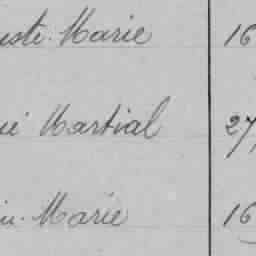 uste Marie 16
ué Martial 27,
in Marie 16